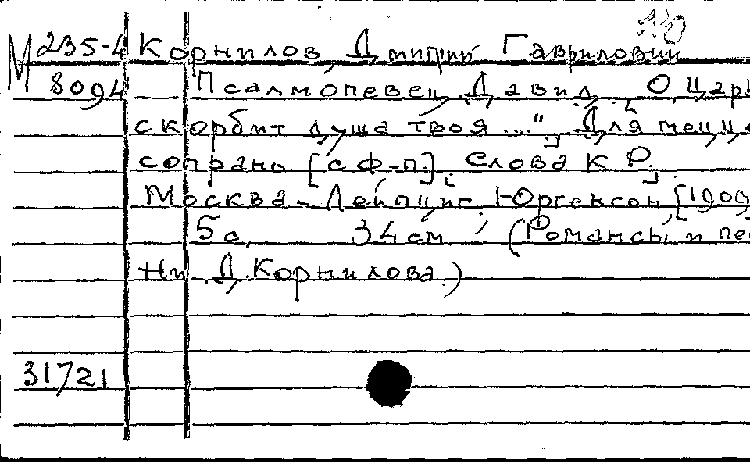 М 235-4 Корнилов, Дмитрий Гаврилович
8094 Псалмопевец Давид. „О, царь,
скорбит душа твоя..." Для меццо
сопрано [с ф-п]. Слова К. Р.
Москва-Лейпциг, Юргенсон, [1909
5 с. 34 см. (Романсы и пес
ни Д. Корнилова.)
31721